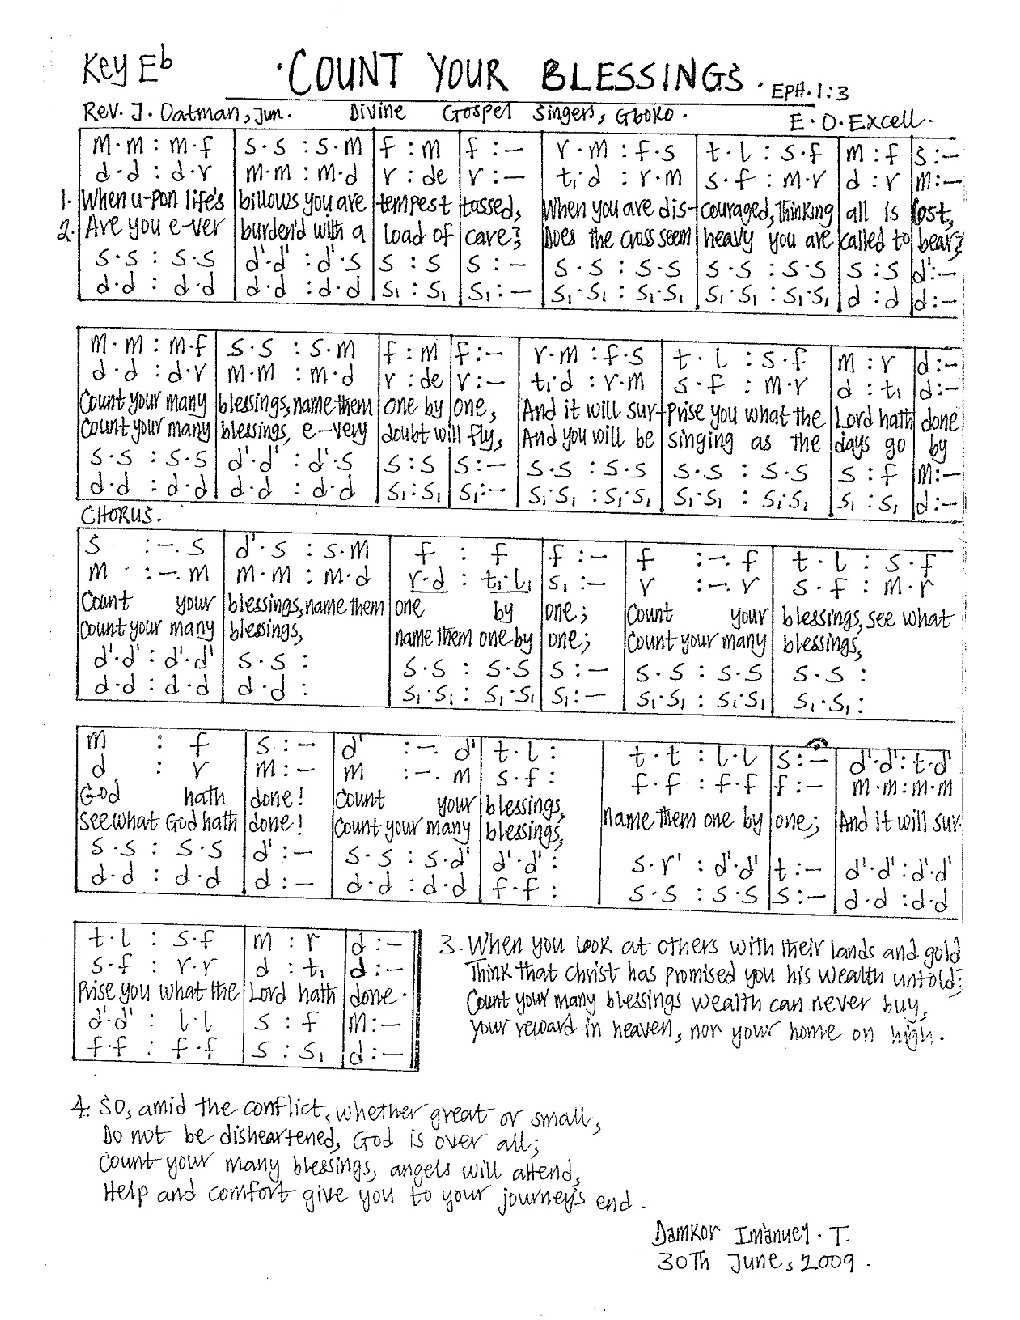 Key Eb ·COUNT YOUR BLESSINGS. EPH.1:3
Rev. J. Oatman, Jun. Divine Gospel Singers, Gboko. E.O.Excell.
m·m : m·f | s·s : s·m | f : m | f :– | r·m : f·s | t·l : s·f | m : f | s :–
d·d : d·r | m·m : m·d | r : de | r :– | t₁·d : r·m | s·f : m·r | d : r | m:–
1. When u-pon life's billows you are tempest tossed, When you are dis-couraged, thinking all is lost,
2. Are you e-ver burden'd with a load of care? Does the cross seem heavy you are called to bear?
s·s : s·s | d'·d' : d'·s | s : s | s :– | s·s : s·s | s·s : s·s | s : s | d':–
d·d : d·d | d·d : d·d | s₁ : s₁ | s₁ :– | s₁·s₁ : s₁·s₁ | s₁·s₁ : s₁·s₁ | d : d | d :–
m·m : m·f | s·s : s·m | f : m | f :– | r·m : f·s | t·l : s·f | m : r | d :–
d·d : d·r | m·m : m·d | r : de | r :– | t₁·d : r·m | s·f : m·r | d : t₁ | d:–
Count your many blessings, name them one by one, And it will sur-prise you what the Lord hath done
Count your many blessings, e-very doubt will fly, And you will be singing as the days go by
s·s : s·s | d'·d' : d'·s | s : s | s :– | s·s : s·s | s·s : s·s | s : f | m:–
d·d : d·d | d·d : d·d | s₁ : s₁ | s₁ :– | s₁·s₁ : s₁·s₁ | s₁·s₁ : s₁·s₁ | s₁ : s₁ | d :–
CHORUS.
s :–. s | d'·s : s·m | f : f | f :– | f :–. f | t·l : s·f
m :–. m | m·m : m·d | r·d : t₁·l₁ | s₁ :– | r :–. r | s·f : m·r
Count your blessings, name them one by one; Count your blessings, see what
Count your many blessings, name them one by one; Count your many blessings,
d'·d' : d'·d' | s·s : | s·s : s·s | s :– | s·s : s·s | s·s :
d·d : d·d | d·d : | s₁·s₁ : s₁·s₁ | s₁ :– | s₁·s₁ : s₁·s₁ | s₁·s₁ :
m : f | s :– | d' :–. d' | t·l : | t·t : l·l | s :– | d'·d' : t·d'
d : r | m :– | m :–. m | s·f : | f·f : f·f | f :– | m·m : m·m
God hath done! Count your blessings,
See what God hath done! Count your many blessings, Name them one by one; And it will sur-
s·s : s·s | d' :– | s·s : s·d' | d'·d' : | s·r' : d'·d' | t :– | d'·d' : d'·d'
d·d : d·d | d :– | d·d : d·d | f·f : | s·s : s·s | s :– | d·d : d·d
t·l : s·f | m : r | d :–
s·f : r·r | d : t₁ | d :–
Prise you what the Lord hath done.
d'·d' : l·l | s : f | m:–
f·f : f·f | s : s₁ | d :–
3. When you look at others with their lands and gold
Think that Christ has promised you his wealth untold;
Count your many blessings wealth can never buy,
your reward in heaven, nor your home on high.
4. So, amid the conflict, whether great or small,
Do not be disheartened, God is over all;
Count your many blessings, angels will attend,
Help and comfort give you to your journey's end.
Damkor Imanuel. T.
30th June, 2009.